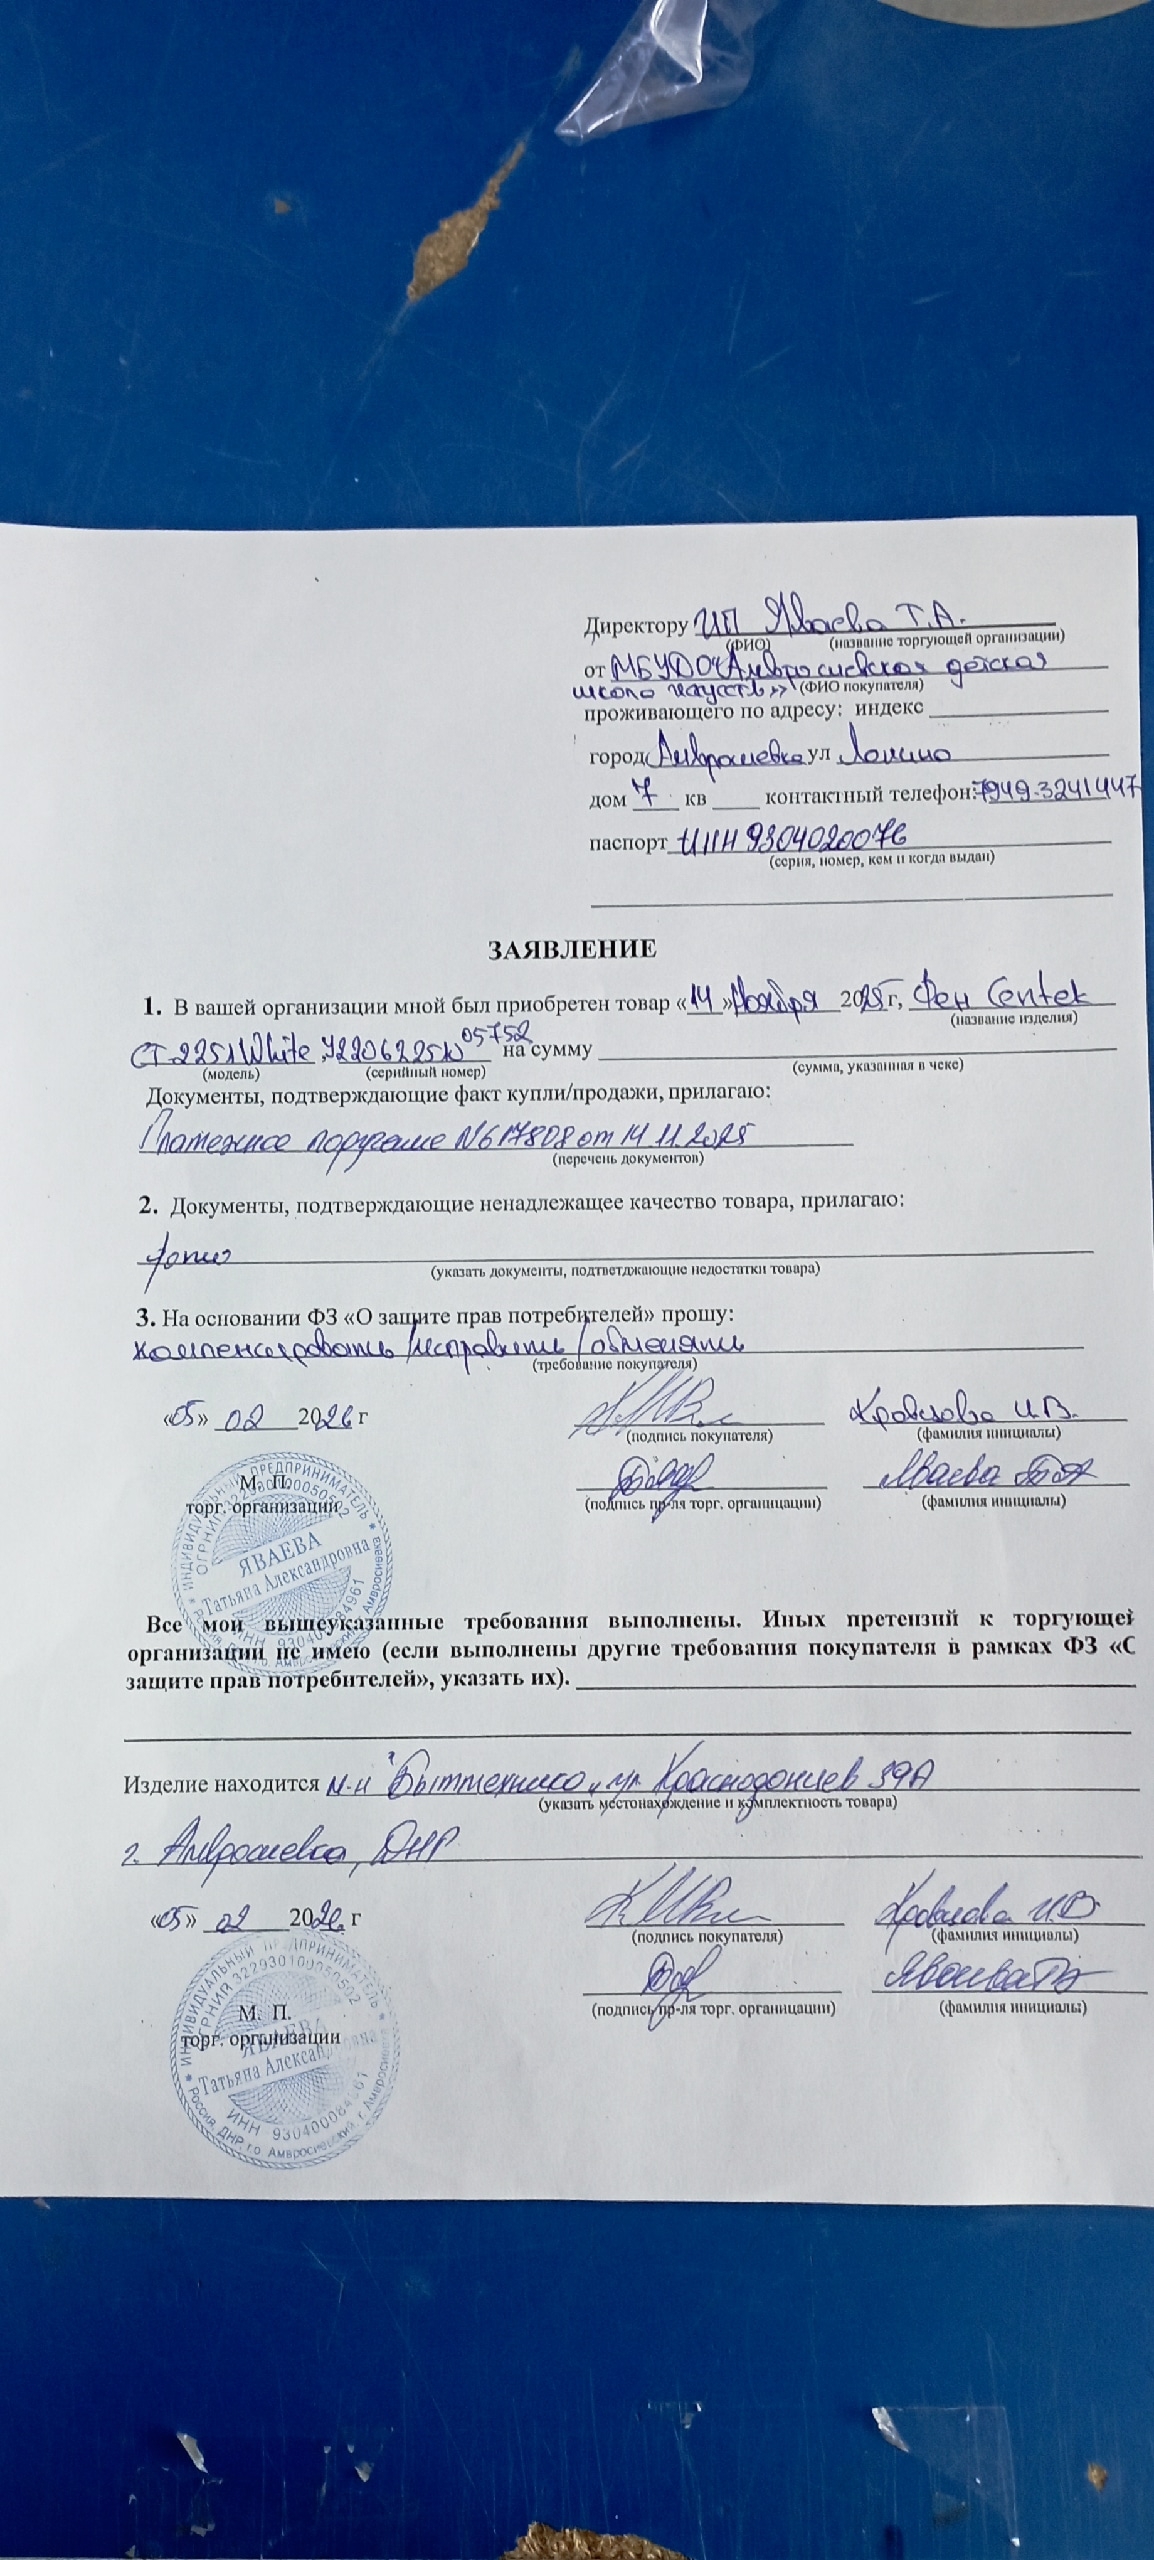 Директору ИП Яваева Т.А.
(ФИО) (название торгующей организации)
от МБУДО «Амвросиевская детская
школа искусств» (ФИО покупателя)
проживающего по адресу: индекс
город Амвросиевка ул Ленина
дом 7 кв контактный телефон: 7949-3241447
паспорт ИНН 9304020076
(серия, номер, кем и когда выдан)
ЗАЯВЛЕНИЕ
1. В вашей организации мной был приобретен товар «14» Ноября 2025 г, Фен Centek
(название изделия)
CT-2251 White, У2206225W05752 на сумму
(модель) (серийный номер) (сумма, указанная в чеке)
Документы, подтверждающие факт купли/продажи, прилагаю:
Платежное поручение №617808 от 14.11.2025
(перечень документов)
2. Документы, подтверждающие ненадлежащее качество товара, прилагаю:
фото
(указать документы, подтветджающие недостатки товара)
3. На основании ФЗ «О защите прав потребителей» прошу:
компенсировать/исправить/обменять
(требование покупателя)
«05» 02 2026 г Кравцова И.В.
(подпись покупателя) (фамилия инициалы)
М. П. Яваева
торг. организации (подпись пр-ля торг. органицации) (фамилия инициалы)
ИНДИВИДУАЛЬНЫЙ ПРЕДПРИНИМАТЕЛЬ
ЯВАЕВА
Татьяна Александровна
Все мои вышеуказанные требования выполнены. Иных претензий к торгующей
организации не имею (если выполнены другие требования покупателя в рамках ФЗ «О
защите прав потребителей», указать их).
Изделие находится м-н "Бытттехника", ул. Краснодонцев 59А
(указать местонахождение и комплектность товара)
г. Амвросиевка, ДНР
«05» 02 2026 г Кравцова И.В
(подпись покупателя) (фамилия инициалы)
Яваева Т.А
М. П. (подпись пр-ля торг. органицации) (фамилия инициалы)
торг. организации
ИНДИВИДУАЛЬНЫЙ ПРЕДПРИНИМАТЕЛЬ
ОГРНИП 322930100050502
ЯВАЕВА
Татьяна Александровна
ИНН 930400084961
Россия, ДНР, г.о. Амвросиевский, г. Амвросиевка